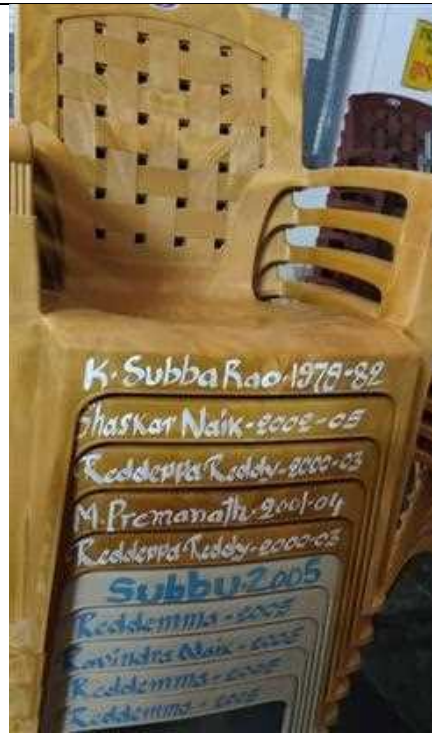 K. Subba Rao. 1979-82
Bhaskar Naik - 2002-05
Reddeppa Reddy - 2000-03
M. Premanath. 2001-04
Reddeppa Reddy - 2000-03
Subbu. 2005
Reddemma - 2005
Ravindra Naik - 2005
Reddemma - 2005
Reddemma - 2005